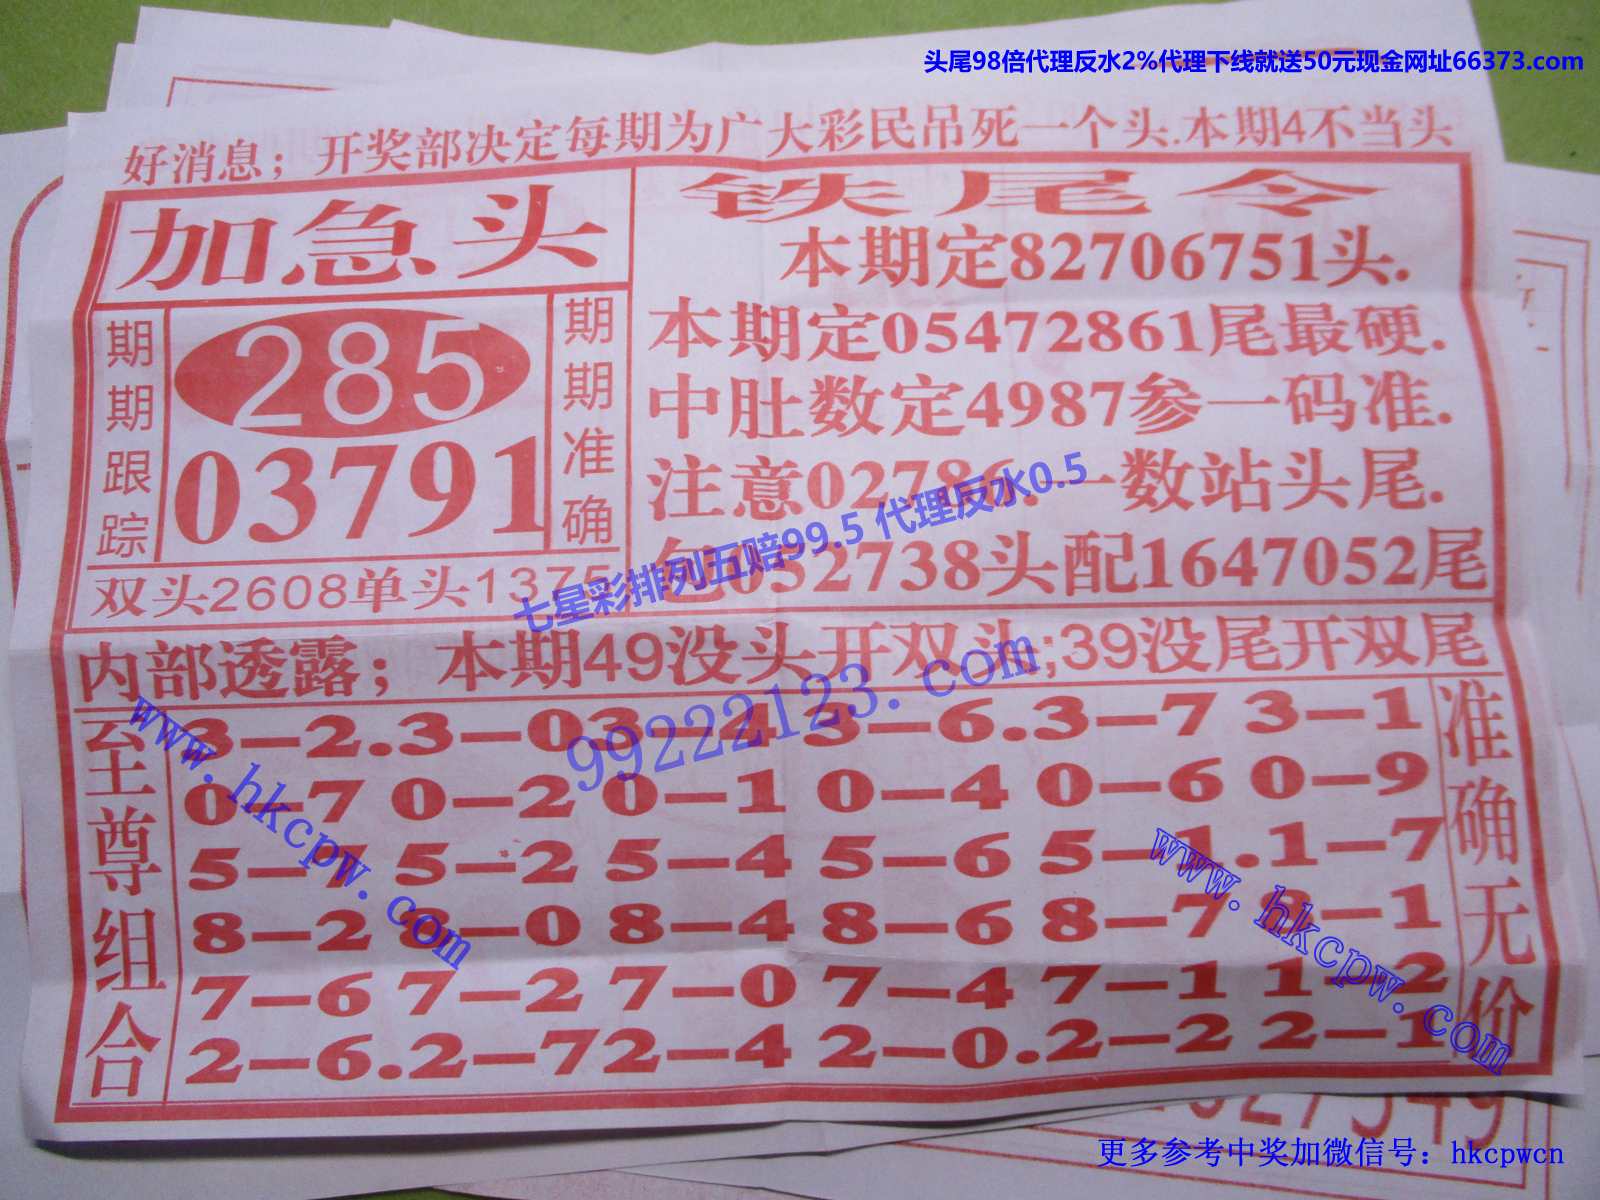 头尾98倍代理反水2%代理下线就送50元现金网址66373.com
好消息；开奖部决定每期为广大彩民吊死一个头.本期4不当头
加急头
期期跟踪
285
03791
期期准确
双头2608单头1375
铁尾令
本期定82706751头.
本期定05472861尾最硬.
中肚数定4987参一码准.
注意02786.一数站头尾.
包052738头配1647052尾
七星彩排列五赔99.5 代理反水0.5
内部透露；本期49没头开双头;39没尾开双尾
99222123.com
至尊组合
3-2.3-03-4 3-6.3-7 3-1
0-7 0-2 0-1 0-4 0-6 0-9
5-7 5-2 5-4 5-6 5-1.1-7
8-2 8-0 8-4 8-6 8-7 8-1
7-6 7-2 7-0 7-4 7-1 1-2
2-6.2-72-4 2-0.2-2 2-1
准确无价
www.hkcpw.com
www.hkcpw.com
更多参考中奖加微信号：hkcpwcn